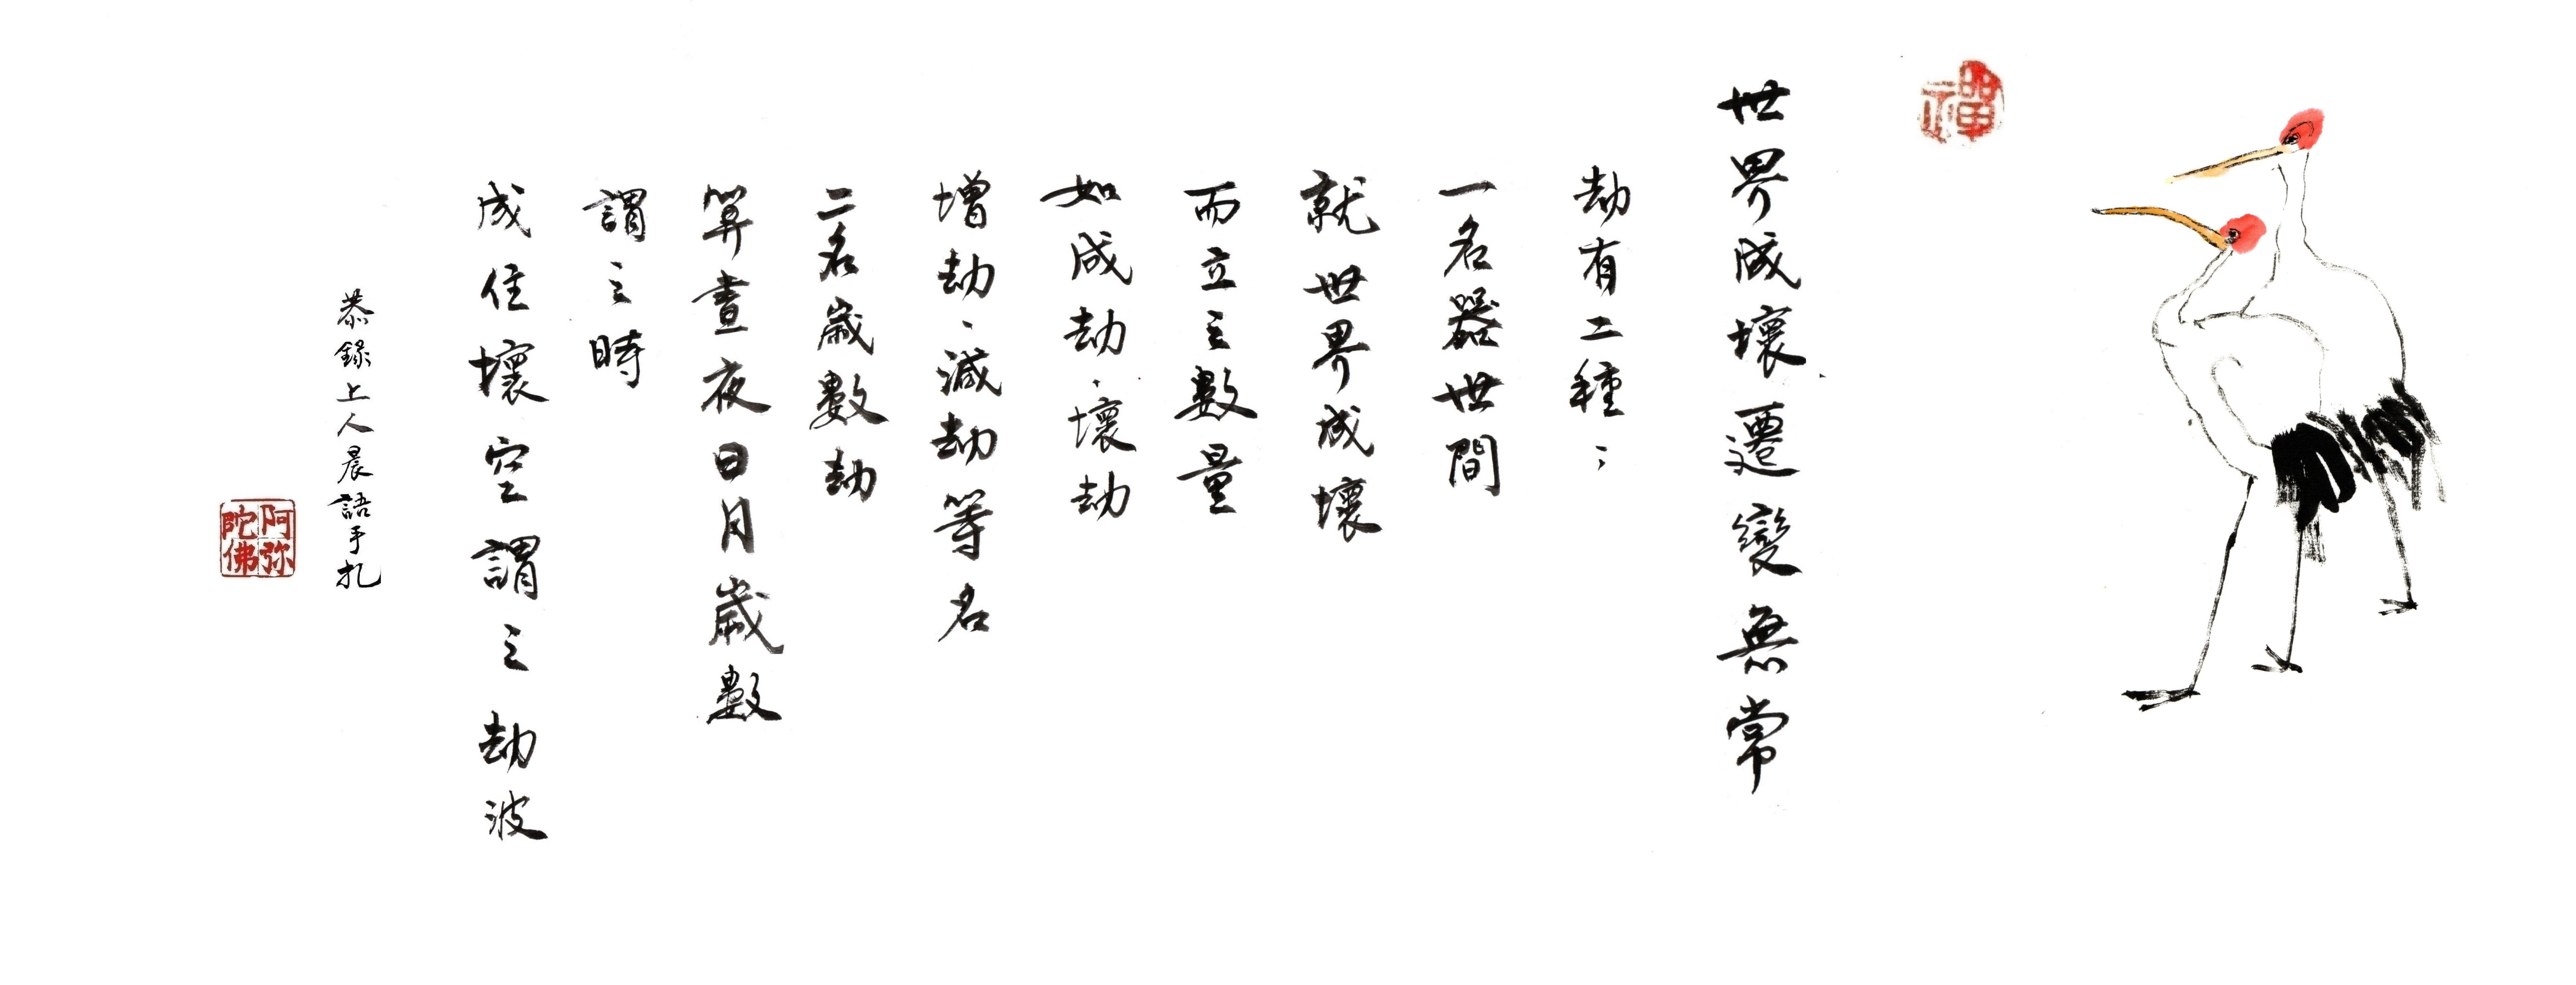 禪
世界成壞遷變無常
劫有二種：
一名器世間
就世界成壞
而立之數量
如成劫、壞劫
增劫、減劫等名
二名歲數劫
算晝夜日月歲數
謂之時
成住壞空謂之劫波
恭錄上人晨語手札
阿弥
陀佛